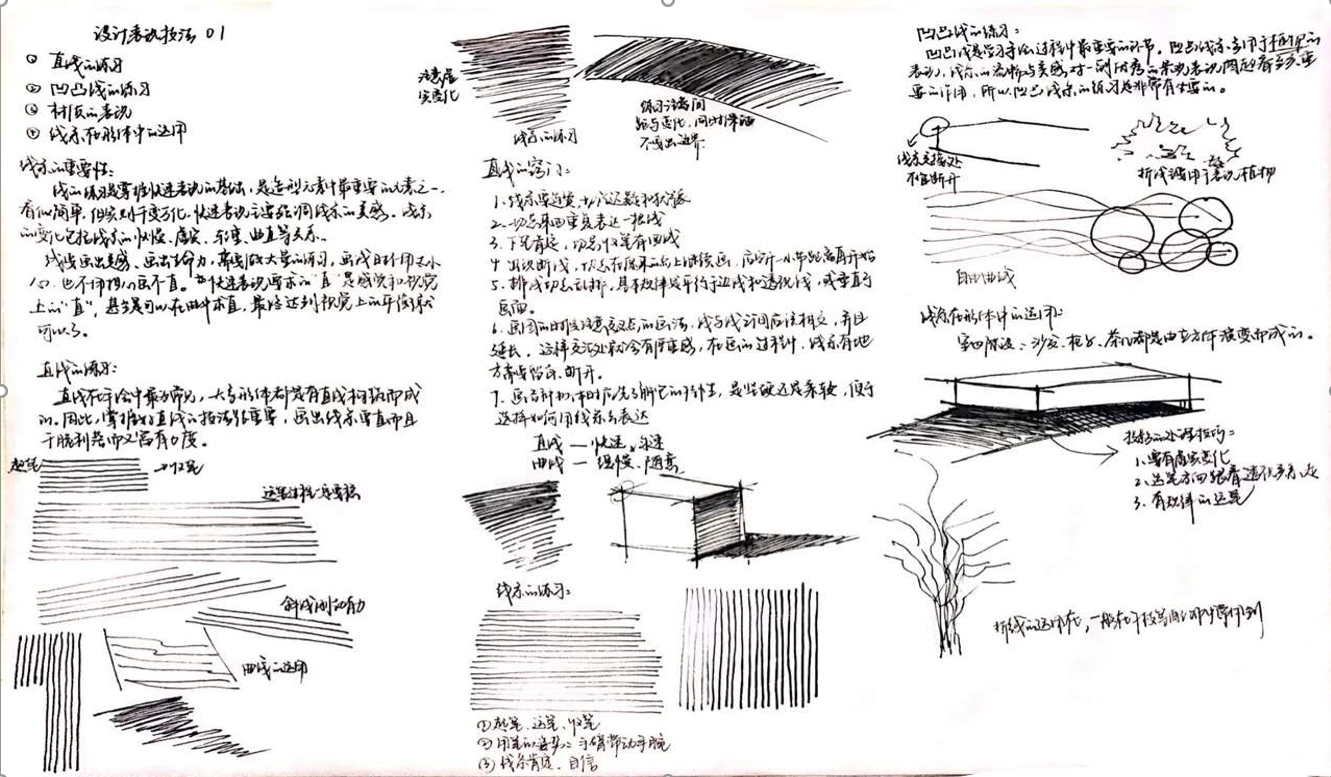 设计表现技法 01
① 直线的练习
② 凹凸线的练习
③ 材质的表现
④ 线条在形体中的运用
线条的重要性:
线的练习是掌握快速表现的基础,是造型元素中最重要的元素之一。
看似简单,但实则千变万化,快速表现主要强调线条的美感。线条
的变化包括线条的快慢、虚实、轻重、曲直等关系。
线要画出美感、画出生命力,需要做大量的练习,画线时不用太小
心,也不用担心画不直。快速表现要求的“直”是感觉和视觉
上的“直”,甚至是可以在曲中求直,最终达到视觉上的平衡就
可以了。
直线的练习:
直线在手绘中最为常见,大多形体都是有直线构筑而成
的。因此,掌握好直线的技法很重要,画出线条要直而且
干脆利落而又富有力度。
起笔
收笔
运笔过程一定要稳
斜线的动力
曲线的运用
注意虚
实变化
线条的练习
练习注意间
距与变化,同时
不要出边界
直线的窍门:
1. 线条要连贯,切忌迟疑和犹豫
2. 切忌来回重复表达一根线
3. 下笔肯定,切忌收笔有回线
4. 出现断线,切忌在原来的点上继续画,应空开一小节距离再开始
5. 排线切忌乱排,基本规律是平行于边线和透视线,或垂直于
画面。
6. 画图的时候注意交叉点的画法,线与线之间应该相交,并且
延长,这样交汇处就会有厚重感,在画的过程中,线条有地
方需要留白、断开。
7. 画各种物体时应先了解它的特性,是坚硬还是柔软,便于
选择如何用线条去表达
直线 — 快速、
曲线 — 缓慢、随意
线条的练习:
① 起笔、运笔、收笔
② 用笔的姿势:手臂带动手腕
③ 线条肯定、自信
凹凸线的练习:
凹凸线是学习手绘过程中最重要的环节。凹凸线条多用于植物的
表现,线条的流畅与美感,对一副优秀的景观表现图起着至关重
要的作用,所以凹凸线条的练习是非常有必要的。
线条交接处
不宜断开
折线适用于表现植物
自由曲线
线条在形体中的运用:
室内陈设、沙发、柜子、茶几都是由立方体演变而成的。
投影的处理技巧:
1. 要有虚实变化
2. 运笔方向跟着透视关系走
3. 有规律的运笔
折线的运用在,一般在干枝与画叶时常用到